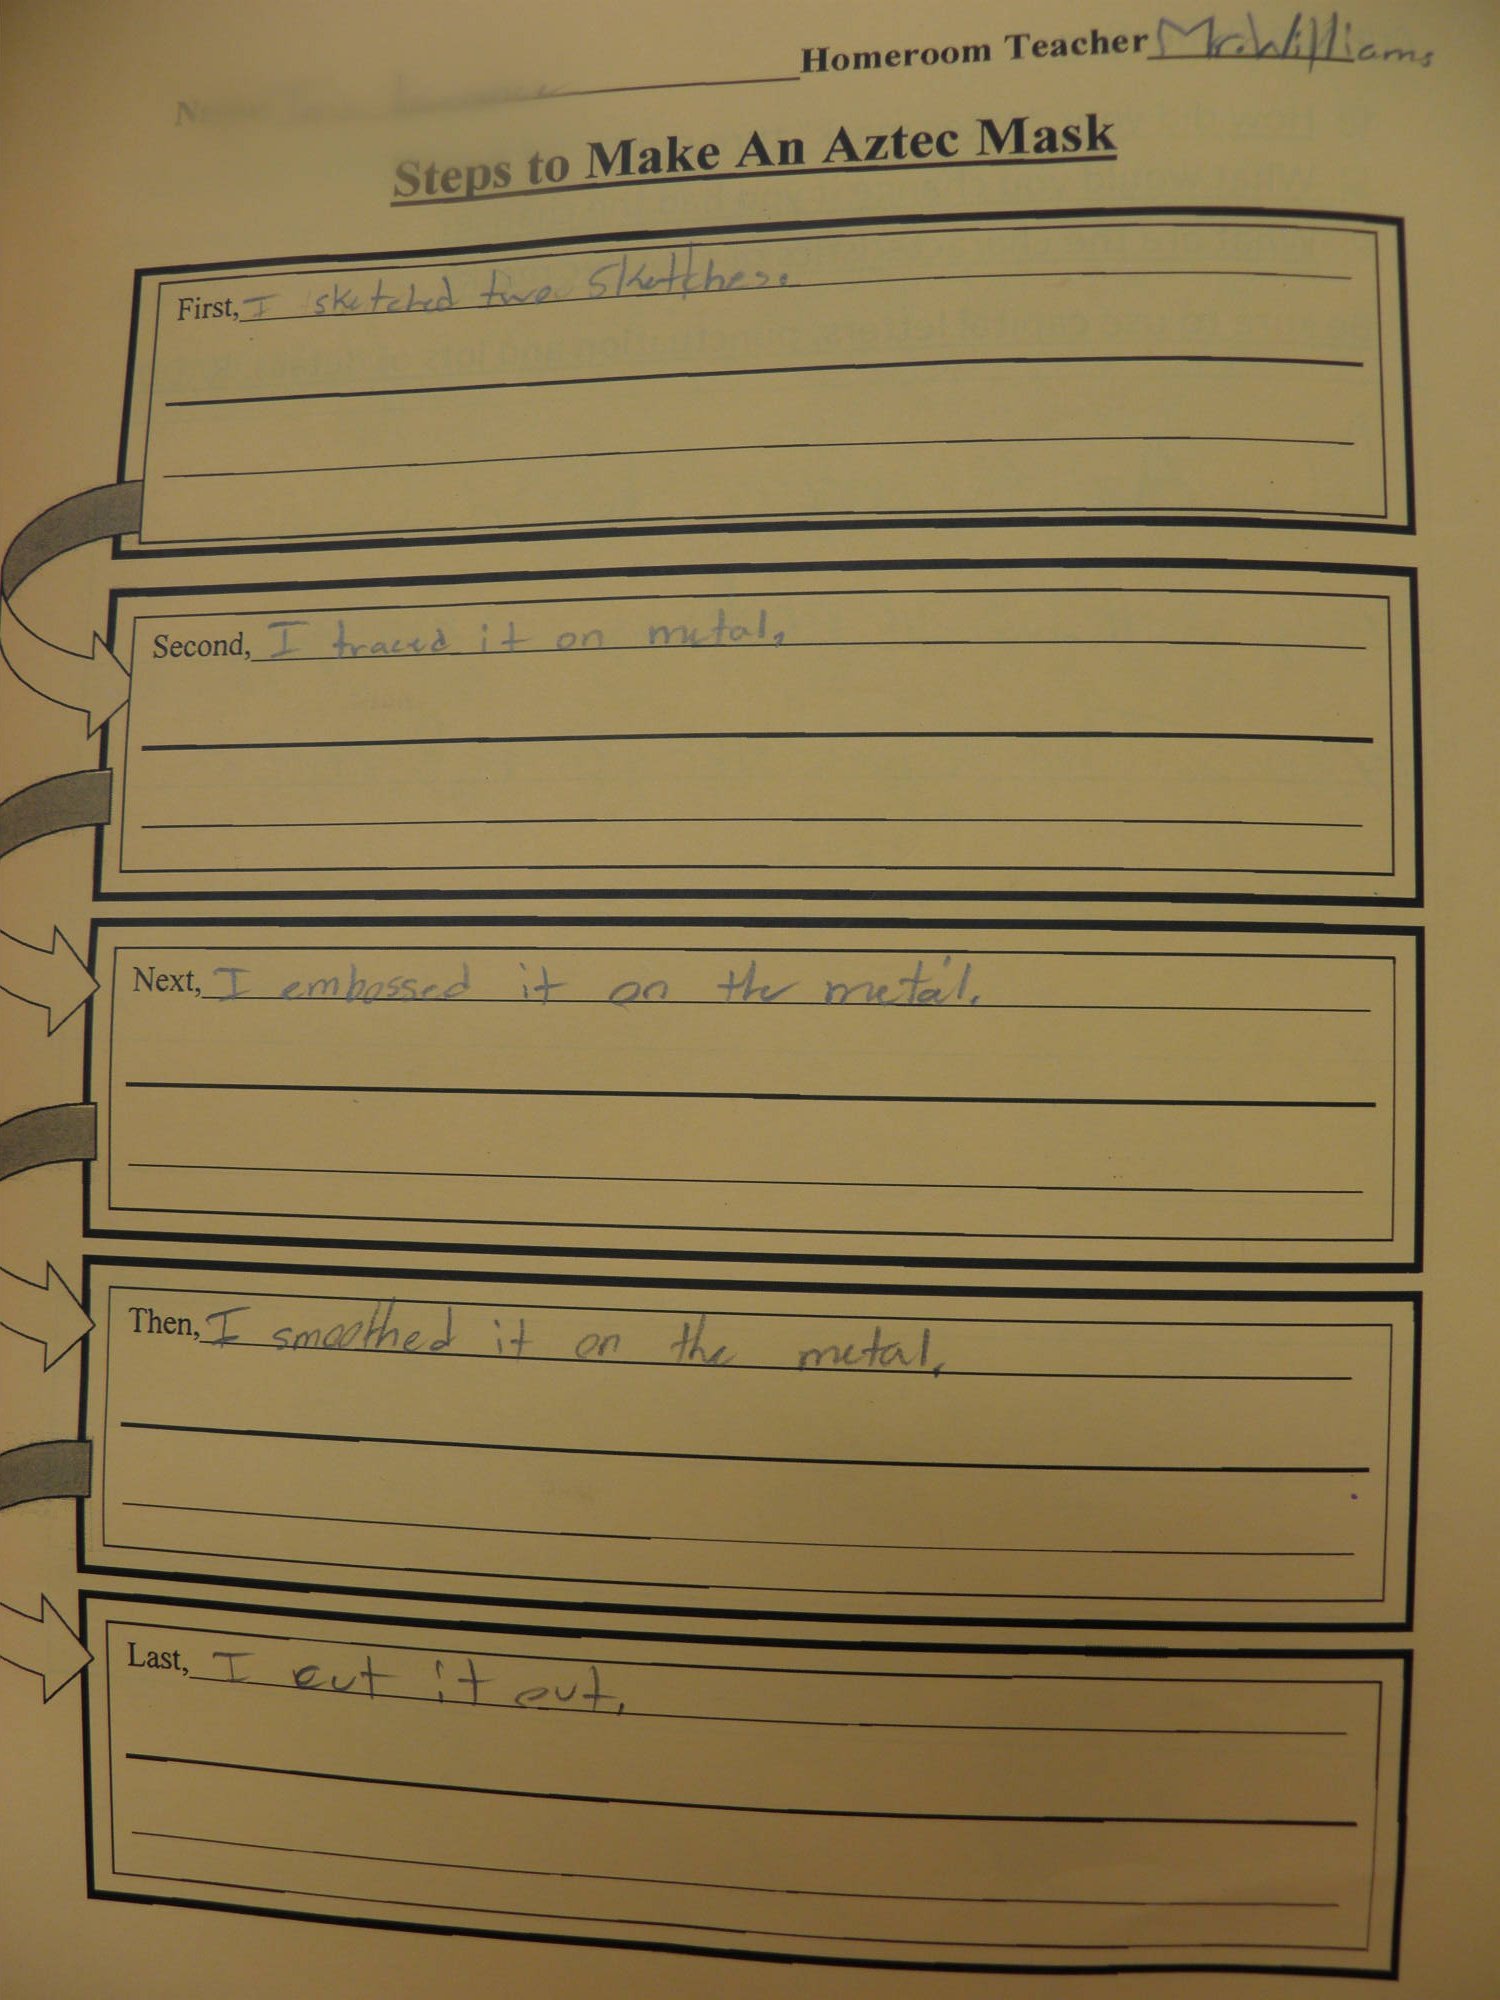 Homeroom Teacher Mr. Williams
Steps to Make An Aztec Mask
First, I sketched two sketches.
Second, I traced it on metal.
Next, I embossed it on the metal.
Then, I smoothed it on the metal.
Last, I cut it out.